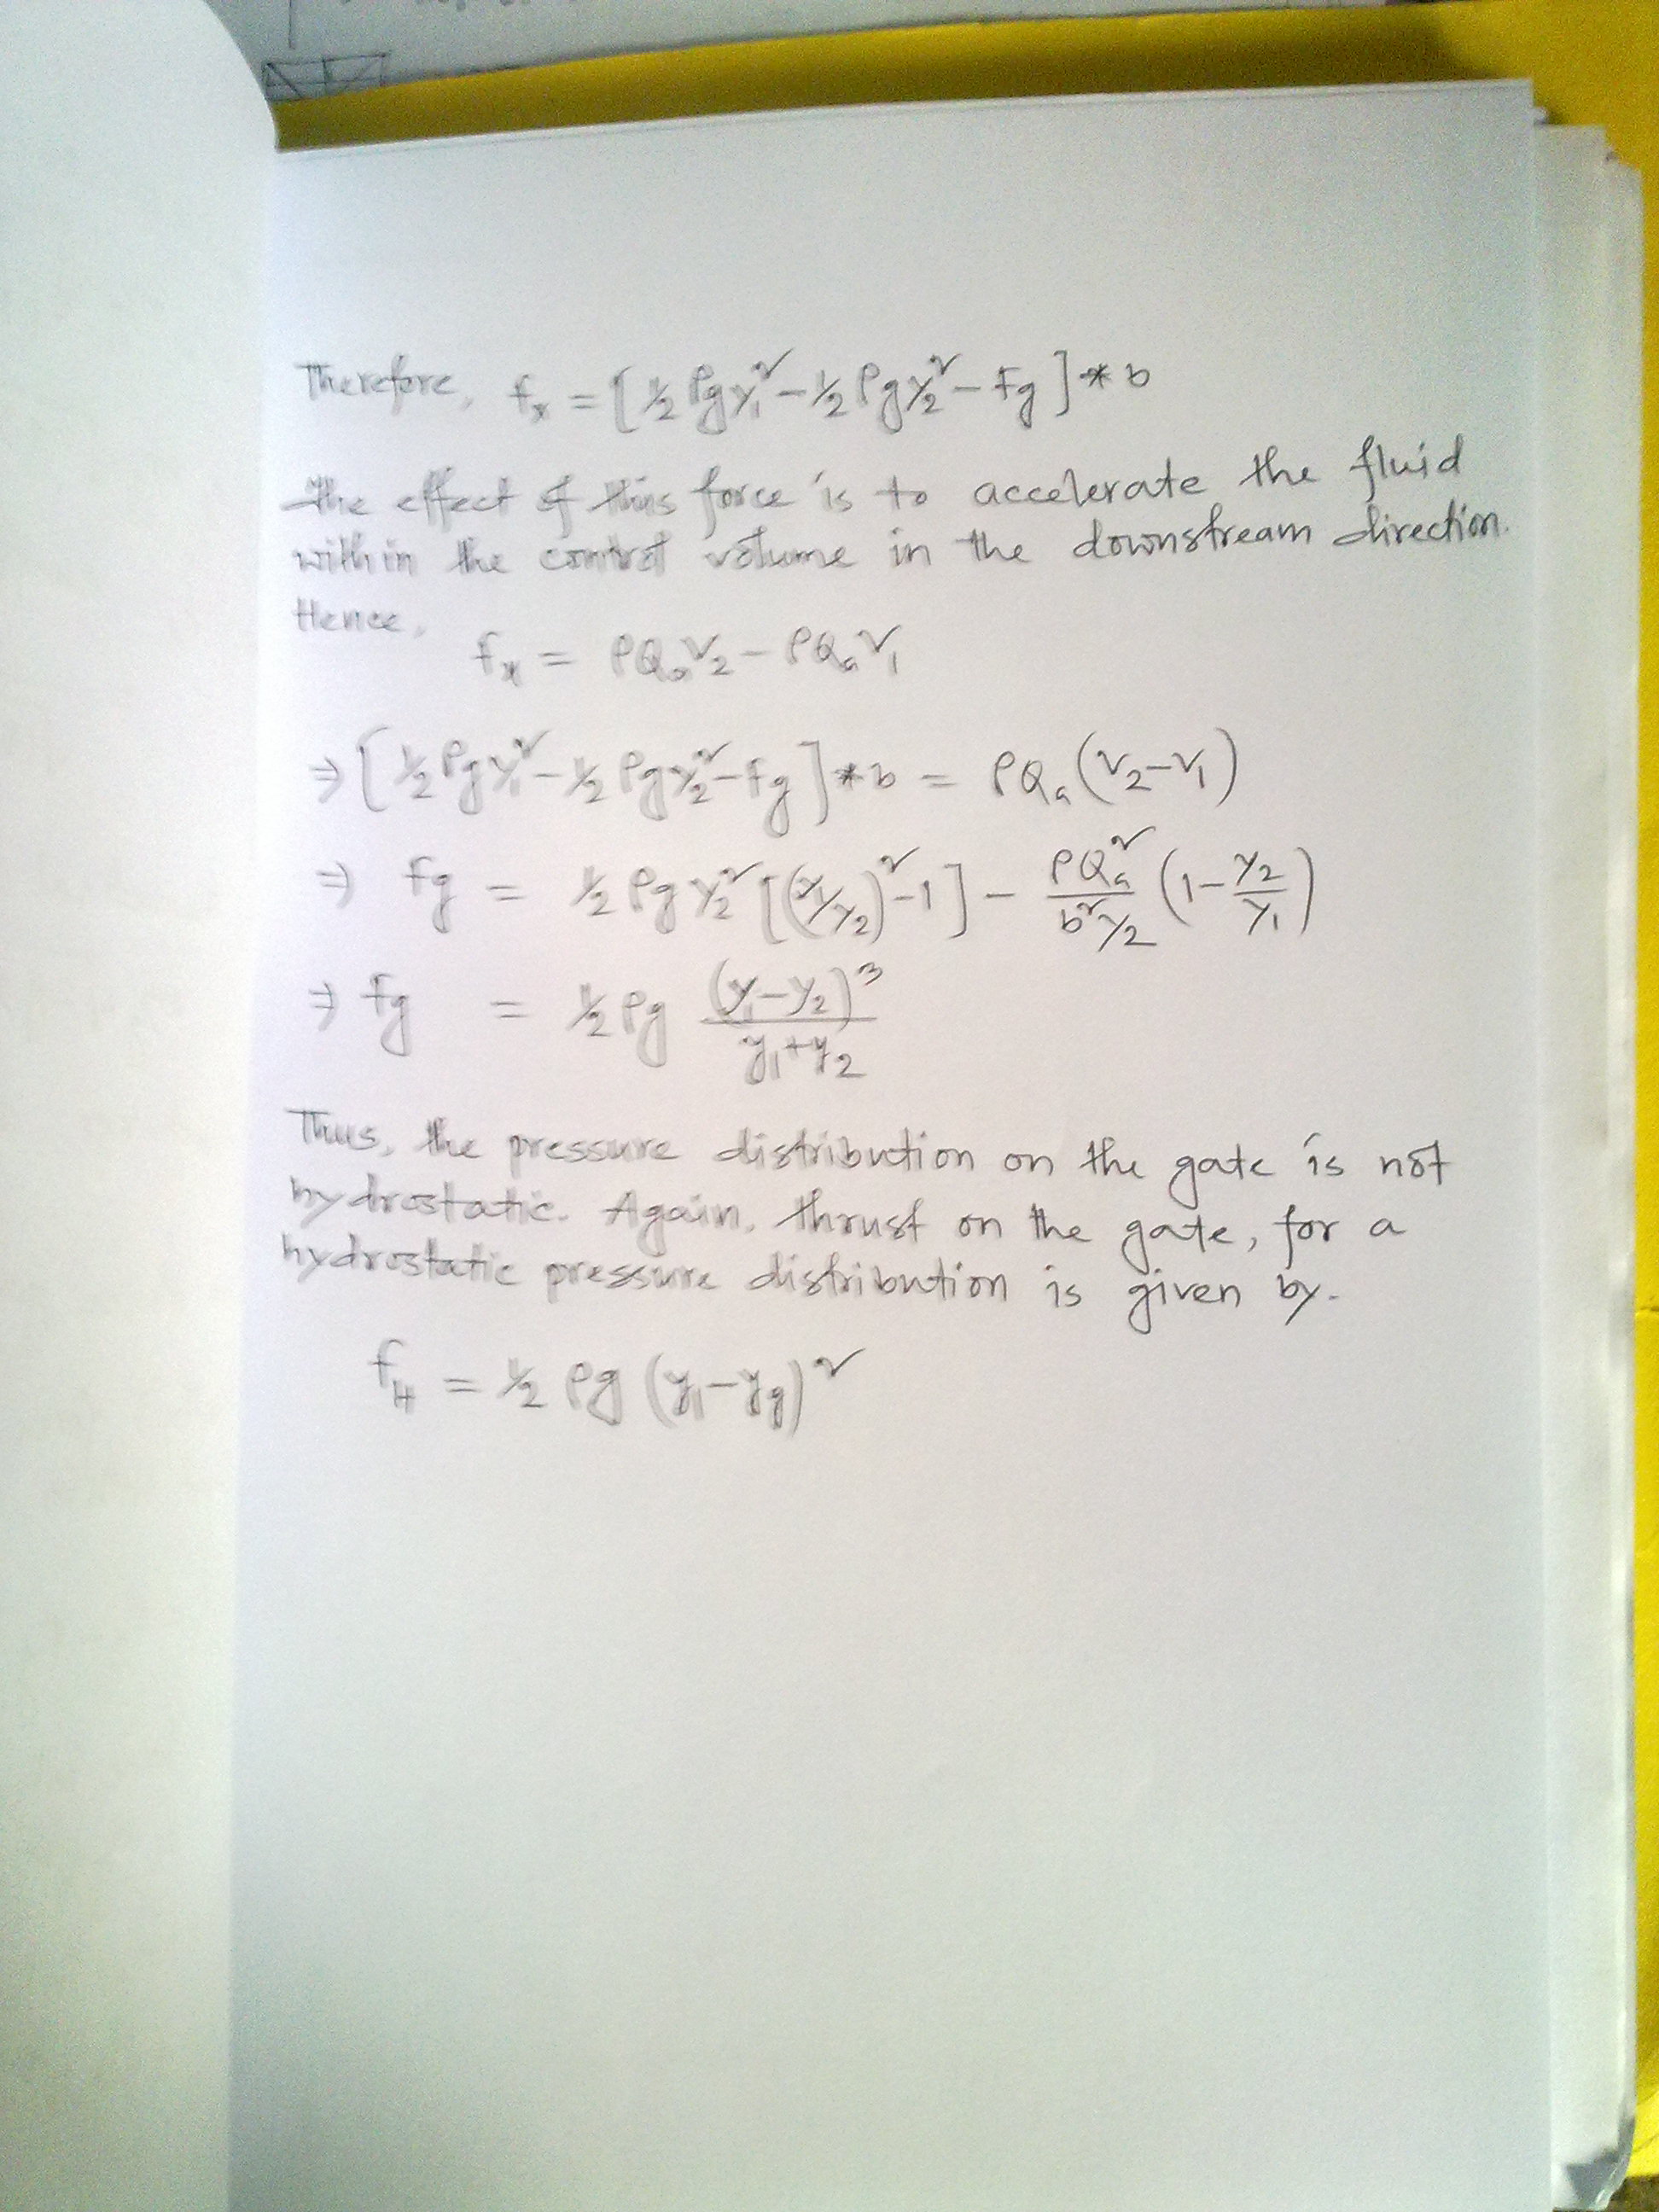 Therefore, Fx = [½ ρgy₁² - ½ ρgy₂² - Fg] * b
The effect of this force is to accelerate the fluid
within the control volume in the downstream direction.
Hence,
Fx = ρQₐV₂ - ρQₐV₁
⇒ [½ ρgy₁² - ½ ρgy₂² - Fg] * b = ρQₐ(V₂-V₁)
⇒ Fg = ½ ρgy₂² [(y₁/y₂)² - 1] - ρQₐ²/b²y₂ (1 - y₂/y₁)
⇒ Fg = ½ ρg (y₁-y₂)³/y₁+y₂
Thus, the pressure distribution on the gate is not
hydrostatic. Again, thrust on the gate, for a
hydrostatic pressure distribution is given by.
F_H = ½ ρg (y₁-y_g)²